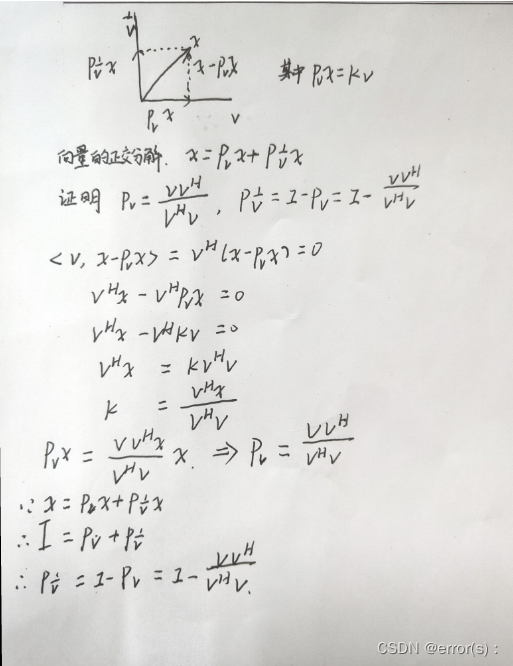 v⊥
P⊥v x
x
x-Pvx
其中 Pvx=kv
Pv x
v
向量的正交分解. x=Pvx+P⊥vx
证明 Pv = vv^H/v^Hv , P⊥v = I-Pv = I- vv^H/v^Hv
<v, x-Pvx> = v^H(x-Pvx)=0
v^Hx - v^HPvx =0
v^Hx - v^Hkv =0
v^Hx = kv^Hv
k = v^Hx/v^Hv
Pvx = vv^Hx/v^Hv x. ⇒ Pv = vv^H/v^Hv
∵ x=Pvx+P⊥vx
∴ I = Pv+P⊥v
∴ P⊥v = I-Pv = I- vv^H/v^Hv.
CSDN @error(s) :